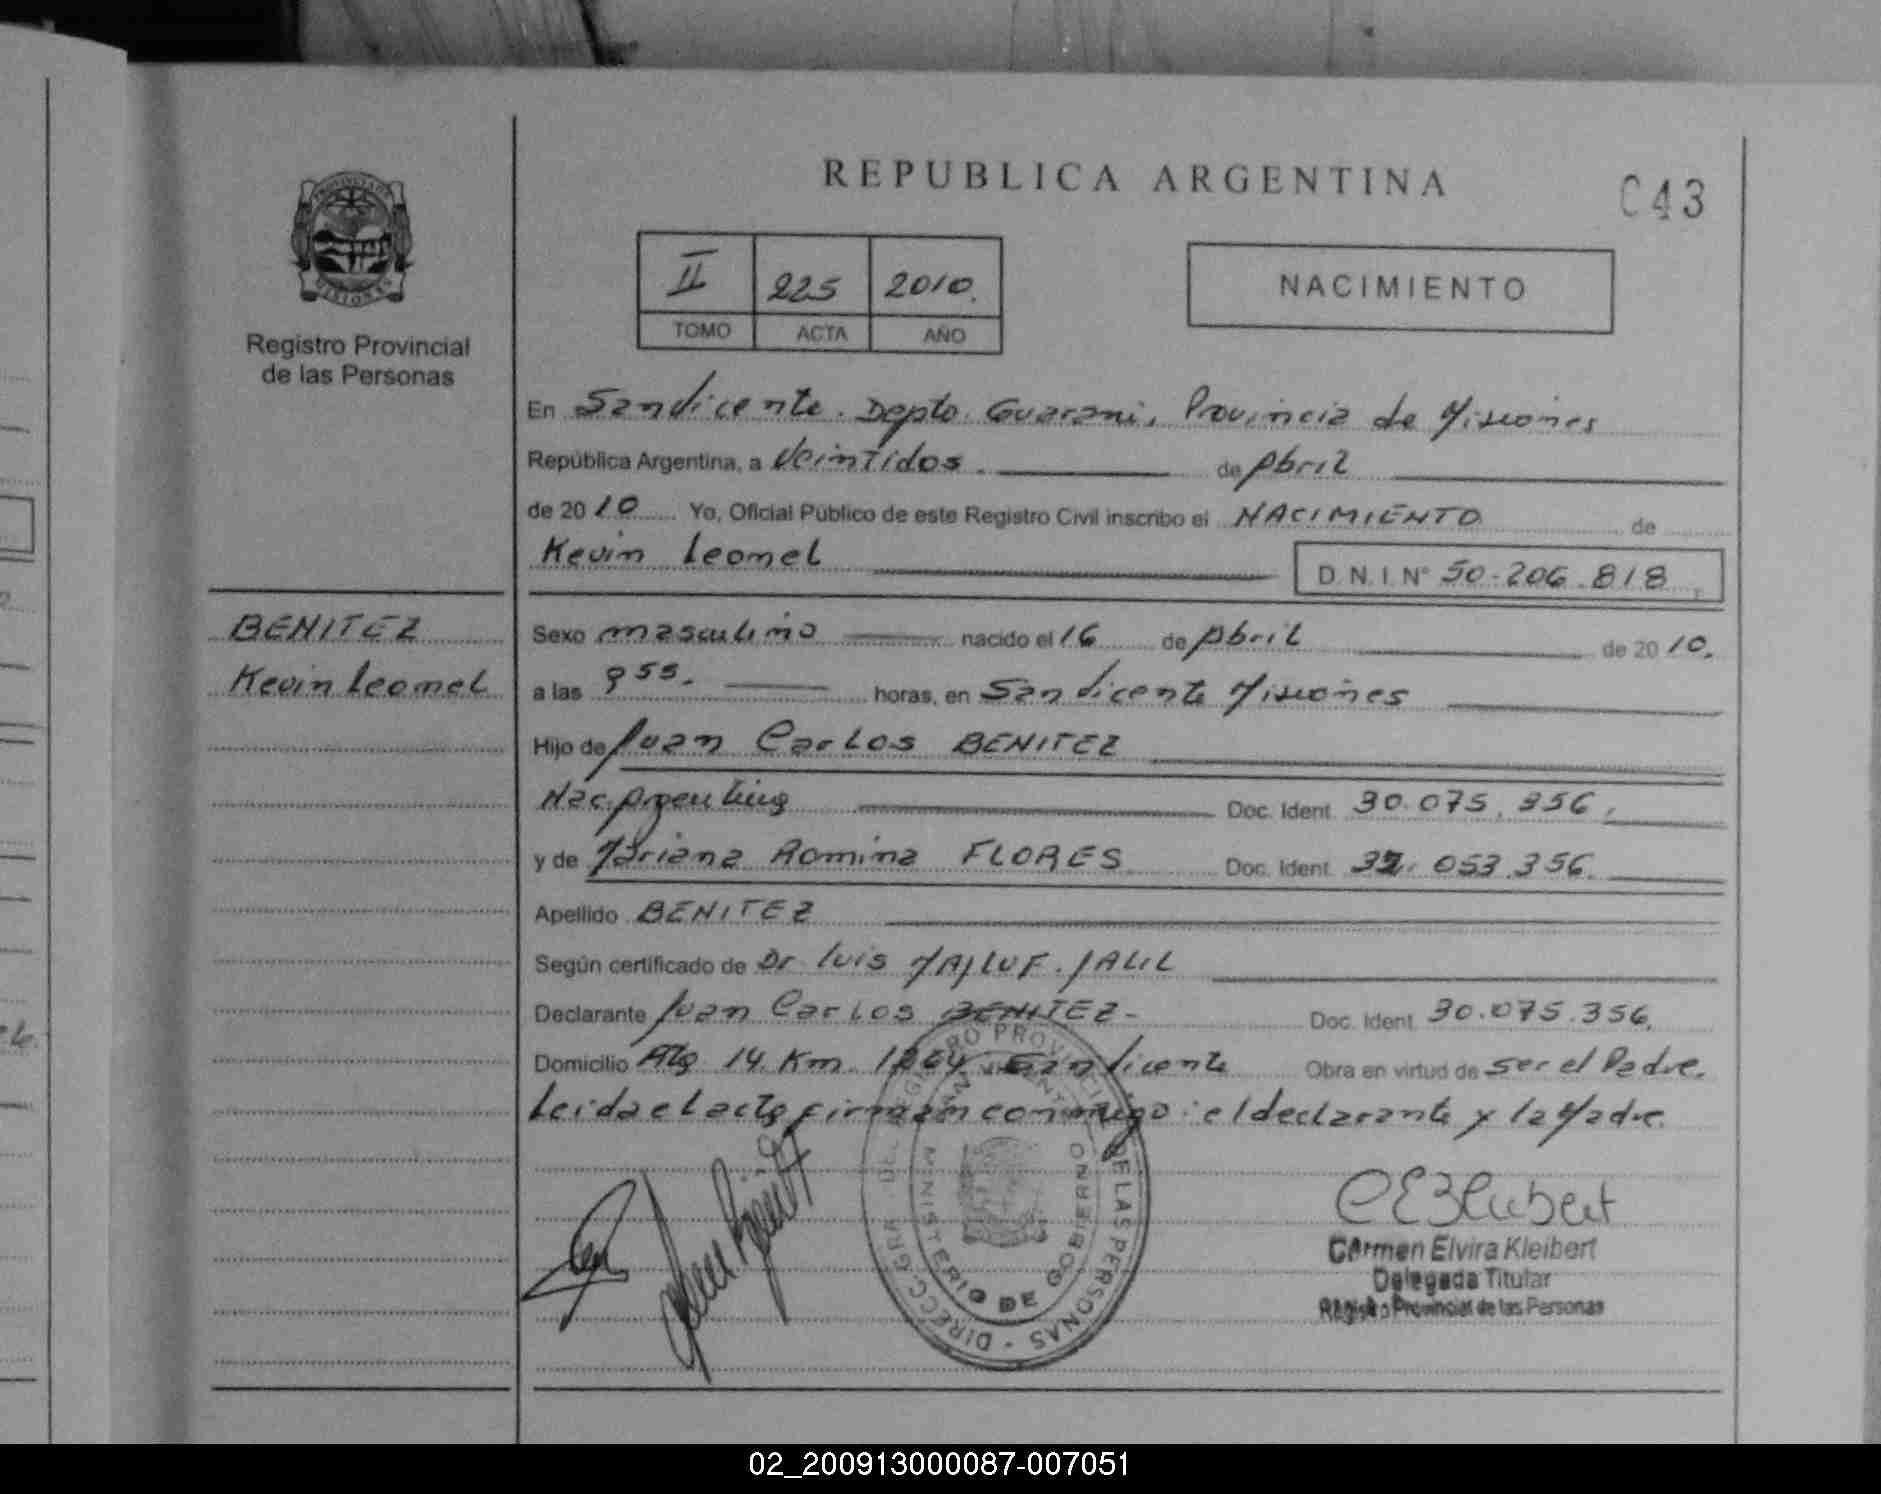 REPUBLICA ARGENTINA
C43
PROVINCIA DE MISIONES
Registro Provincial
de las Personas
II 225 2010.
TOMO ACTA AÑO
NACIMIENTO
En San Vicente. Depto. Guarani, Provincia de Misiones
República Argentina, a Veintidos de Abril
de 2010 Yo, Oficial Público de este Registro Civil inscribo el NACIMIENTO de
Kevin Leonel
D.N.I. N° 50.206.818
BENITEZ
Kevin Leonel
Sexo masculino nacido el 16 de Abril de 2010.
a las 955. horas, en San Vicente Misiones
Hijo de Juan Carlos BENITEZ
Nac. Argentina Doc. Ident. 30.075.356.
y de Mariana Romina FLORES Doc. Ident. 053.356.
Apellido BENITEZ
Según certificado de Dr. Luis JALIL
Declarante Juan Carlos BENITEZ- Doc. Ident. 30.075.356.
Domicilio 14. Km. San Vicente Obra en virtud de ser el Padre.
Leida el acta firman conmigo: el declarante y la Madre.
DIRECC. GRAL. DEL REGISTRO PROVINCIAL DE LAS PERSONAS
MINISTERIO DE GOBIERNO
Carmen Elvira Kleibert
Delegada Titular
Registro Provincial de las Personas
02_200913000087-007051